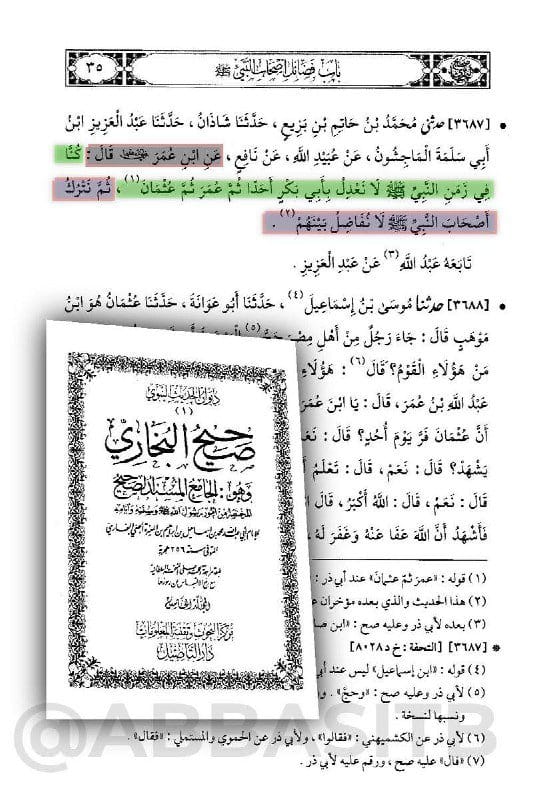 ٣٥
بَابُ فَضَائِلِ أَصْحَابِ النَّبِيِّ ﷺ
• [٣٦٨٧] حدثني مُحَمَّدُ بْنُ حَاتِمِ بْنِ بَزِيعٍ ، حَدَّثَنَا شَاذَانُ ، حَدَّثَنَا عَبْدُ الْعَزِيزِ ابْنُ
أَبِي سَلَمَةَ الْمَاجِشُونُ ، عَنْ عُبَيْدِ اللَّهِ ، عَنْ نَافِعٍ ، عَنِ ابْنِ عُمَرَ قَالَ : كُنَّا
فِي زَمَنِ النَّبِيِّ ﷺ لَا نَعْدِلُ بِأَبِي بَكْرٍ أَحَدًا ثُمَّ عُمَرَ ثُمَّ عُثْمَانَ (١) ، ثُمَّ نَتْرُكُ
أَصْحَابَ النَّبِيِّ ﷺ لَا نُفَاضِلُ بَيْنَهُمْ (٢) .
تَابَعَهُ عَبْدُ اللَّهِ (٣) عَنْ عَبْدِ الْعَزِيزِ .
• [٣٦٨٨] حدثنا مُوسَى بْنُ إِسْمَاعِيلَ (٤) ، حَدَّثَنَا أَبُو عَوَانَةَ ، حَدَّثَنَا عُثْمَانُ هُوَ ابْنُ
مَوْهَبٍ قَالَ : جَاءَ رَجُلٌ مِنْ أَهْلِ مِصْرَ (٥)
مَنْ هَؤُلَاءِ الْقَوْمُ؟ قَالَ (٦) : هَؤُلَاءِ
عَبْدُ اللَّهِ بْنُ عُمَرَ ، قَالَ : يَا ابْنَ عُمَرَ
أَنَّ عُثْمَانَ فَرَّ يَوْمَ أُحُدٍ؟ قَالَ : نَعَمْ
يَشْهَدْ؟ قَالَ : نَعَمْ ، قَالَ : تَعْلَمُ
قَالَ : نَعَمْ ، قَالَ : اللَّهُ أَكْبَرُ ، قَالَ
فَأَشْهَدُ أَنَّ اللَّهَ عَفَا عَنْهُ وَغَفَرَ لَهُ ،
ديوان الحديث النبوي
(١)
صحيح البخاري
وهو : الجامع المسند الصحيح
المختصر من أمور رسول الله ﷺ وسننه وأيامه
للإمام أبي عبد الله محمد بن إسماعيل بن إبراهيم بن المغيرة الجعفي البخاري
المتوفى سنة ٢٥٦ هجرية
مركز البحوث وتقنية المعلومات
دار التأصيل
(١) قوله : «عمر ثمّ عثمان» عند أبي ذر :
(٢) هذا الحديث والذي بعده مؤخران
(٣) بعده لأبي ذر وعليه صح : «ابن
* [٣٦٨٧] [التحفة : خ د ٨٠٢٨]
(٤) قوله : «ابن إسماعيل» ليس عند أبي
(٥) لأبي ذر وعليه صح : «وحجّ» .
ونسبها لنسخة .
(٦) لأبي ذر عن الكشميهني : «فقالوا» ، ولأبي ذر عن الحموي والمستملي : «فقال» .
(٧) «قال» عليه صح ، ورقم عليه لأبي ذر .
@ABBASITB